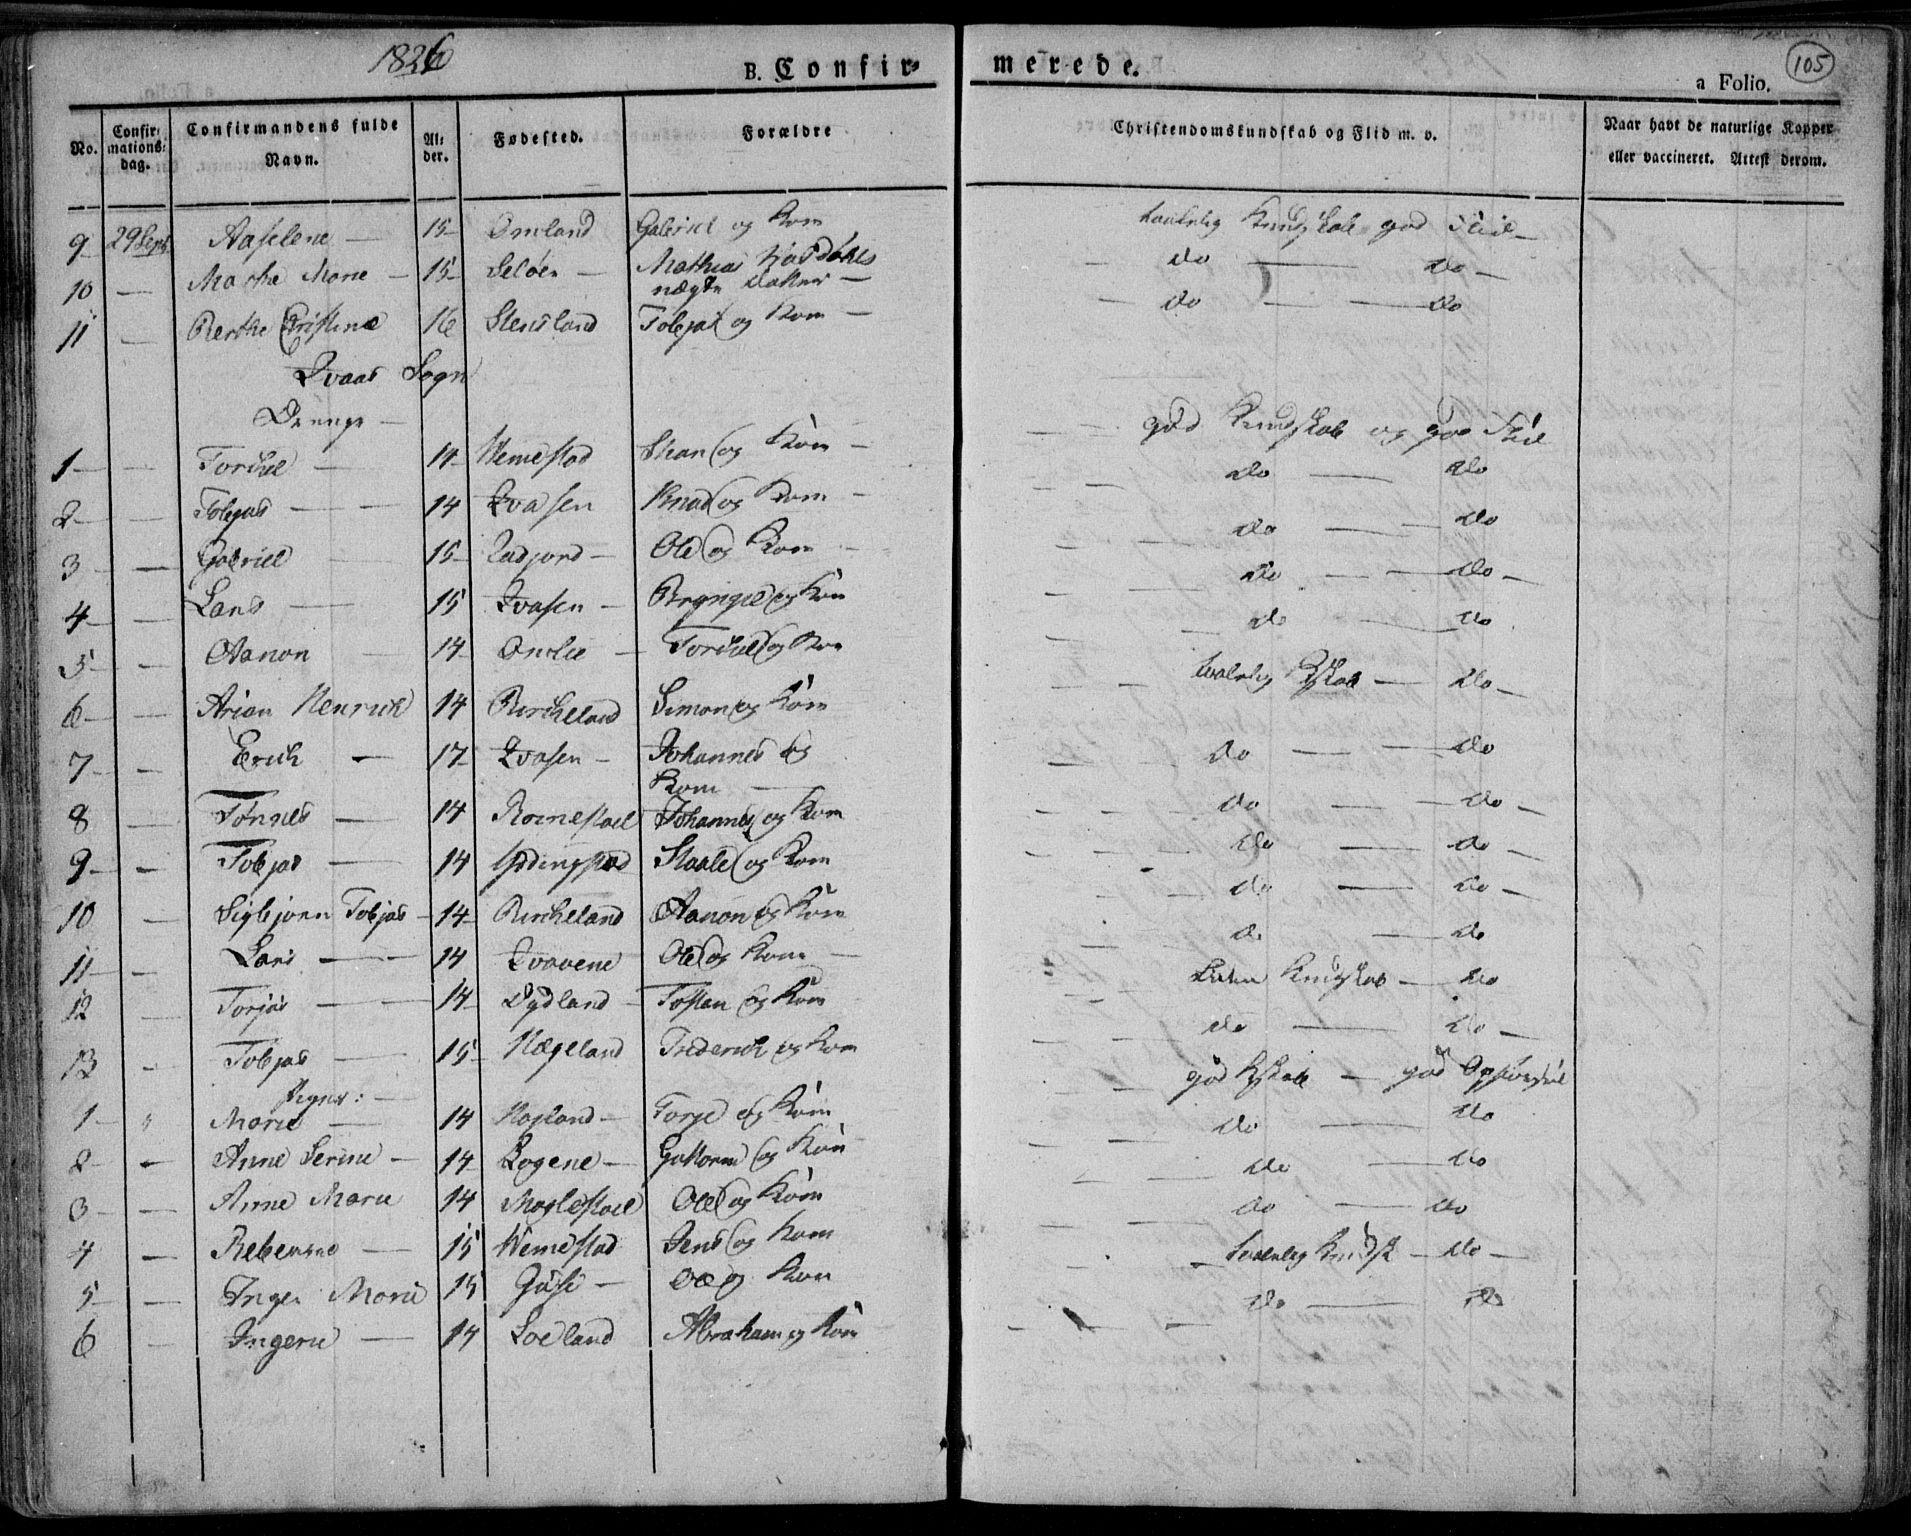 1826
B. Confir-
merede.
105
a Folio.
No. Confir-mations-dag. Confirmandens fulde Navn. Al-der. Fødested. Forældre Christendomskundskab og Flid m. v. Naar havt de naturlige Kopper eller vaccineret. Attest derom.
9 29 Sept Aaselene — 15 Omland Gabriel og Kone taalelig Kundskab god Flid
10 — Marthe Marie — 15 Seløen — Mathias do — do —
nægte Datter —
11 — Berthe Christine 16 Stensland Tobjas og Kone — do — do
Qvaas Sogn
Drenge —
1 — Torkel — 14 Nemestad Skan og Kone — god Kundskab og god Flid
2 — Tobjas — 14 Qvasen Knud og Kone — do — do
3 — Gabriel 15 Ole og Kone do — do
4 — Lars — 15 Qvasen — Bryngel og Kone do — do —
5 — Aanon 14 Omlie — Torkel og Kone do — do
6 — Arian Henrich 14 Bircheland Simon og Kone taalelig Kskab — do —
7 — Erich — 17 Qvasen — Johannes og do — do
Kone
8 — Tønnes — 14 Romestoel Johannes og Kone do — do —
9 — Tobjas — 14 Staale og Kone do — do —
10 — Sigbjørn Tobjas — 14 Bircheland Aanon og Kone do — do —
11 — Lars — 14 Qvavene Ole og Kone — do — do
12 — Torjus — 14 Dydland — Tostan og Kone liden Kundskab — do
13 — Tobjas — 15 Hægeland Frederich og Kone do — do —
Piger: —
1 — " Marie — 14 Hagland — Torje og Kone god Kskab — god Opførsel
2 — Anne Serine — 14 Logene — Guttorm og Kone do — do
3 — Anne Marie 14 Moglestoel Ole og Kone do — do
4 — Rebenne — 15 Nemestad Jens og Kone do — do
5 — Inger Marie 15 Gaase — Ole og Kone — taalelig Kundsk — do —
6 — Ingerie — 14 Loeland Abraham og Kone do — do